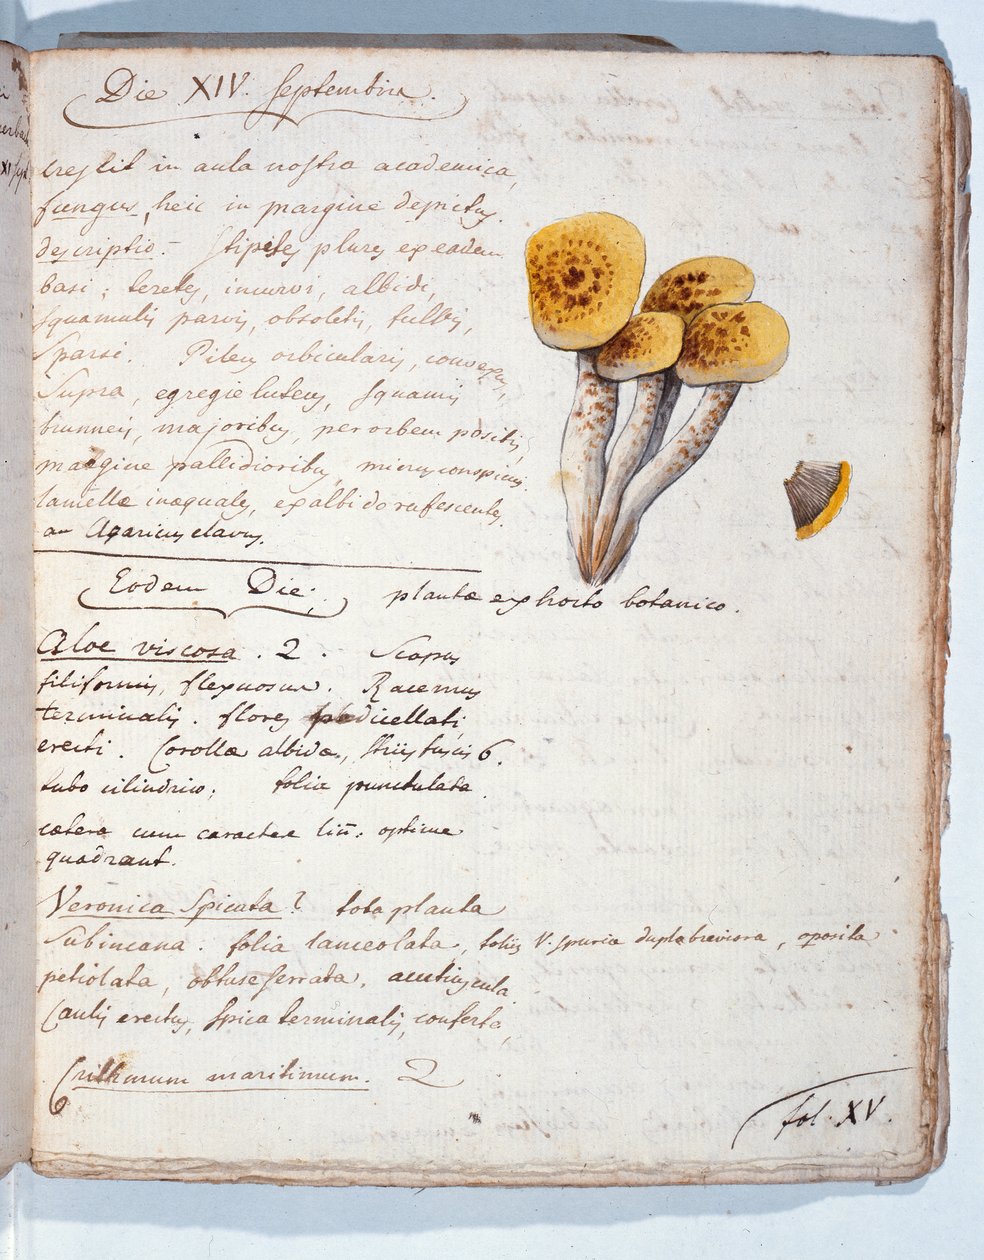 Die XIV. Septembris.
crescit in aula nostra academica,
fungus heic in margine depictus.
descriptio.- Stipites plures ex eadem
basi; teretes, incurvi, albidi,
squamulis parvis, obsoletis, fulvis,
sparsi. Pileus orbicularis, convexus,
supra, egregie luteus, squamis
brunneis, majoribus, per orbem positis,
margine pallidioribus, minus conspicuis.
lamellæ inæquales, ex albido rufescentes,
an Agaricus clavus.
Eodem Die; plantæ ex horto botanico.
Aloe viscosa. 2. Scapus
filiformis, flexuosus. Racemus
terminalis. flores pedicellati,
erecti. Corollæ albidæ, striis fuscis 6.
tubo cilindrico; folia punctulata.
cætera cum caractere lin̄: optime
quadrant.
Veronica Spicata? tota planta
subincana. folia lanceolata, foliis V. spuria duplo breviora, oposita
petiolata, obtuse serrata, acutiuscula.
Caulis erectus, spica terminalis, conferta,
Crithmum maritimum. 2
6
fol. XV.
XI